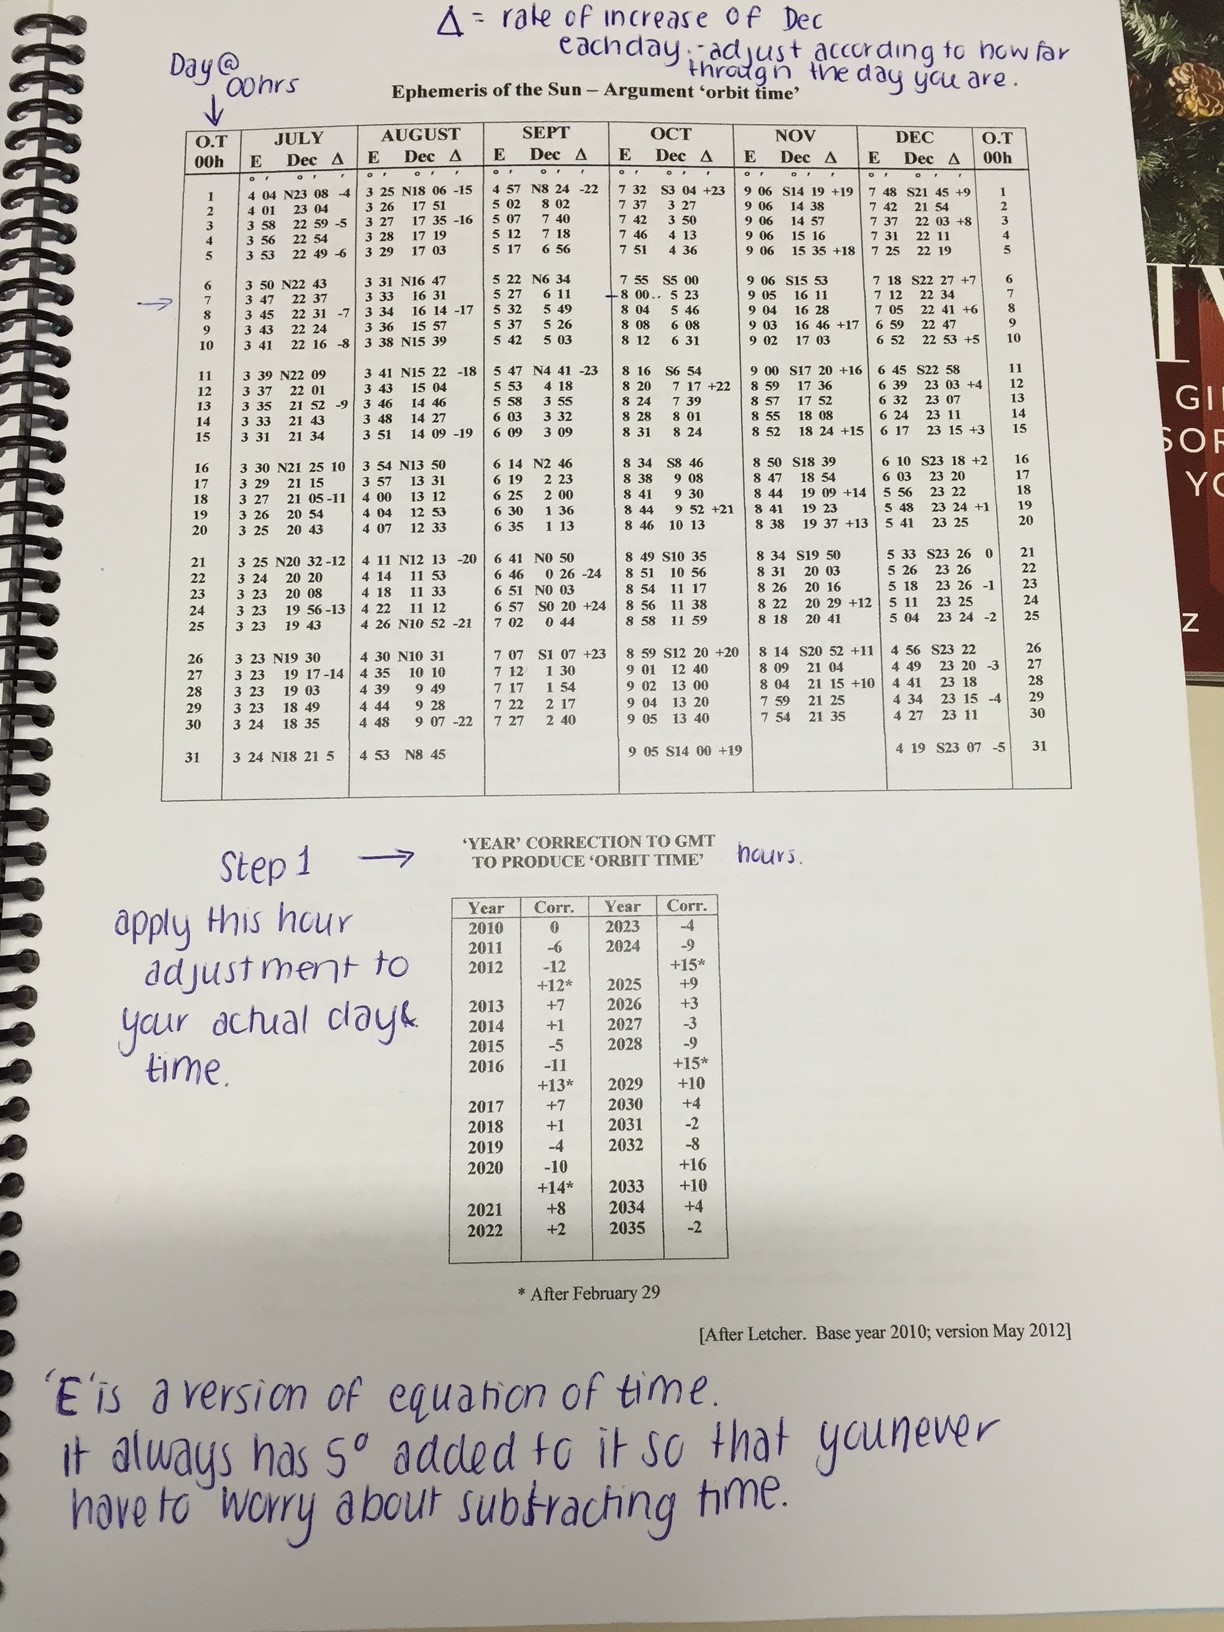 Δ = rate of increase of Dec
each day. - adjust according to how far
through the day you are.
Day@
00hrs
Ephemeris of the Sun – Argument ‘orbit time’
O.T JULY AUGUST SEPT OCT NOV DEC O.T
00h E Dec Δ E Dec Δ E Dec Δ E Dec Δ E Dec Δ E Dec Δ 00h
° ' ° ' ' ° ' ° ' ' ° ' ° ' ' ° ' ° ' ' ° ' ° ' ' ° ' ° ' '
1 4 04 N23 08 -4 3 25 N18 06 -15 4 57 N8 24 -22 7 32 S3 04 +23 9 06 S14 19 +19 7 48 S21 45 +9 1
2 4 01 23 04 3 26 17 51 5 02 8 02 7 37 3 27 9 06 14 38 7 42 21 54 2
3 3 58 22 59 -5 3 27 17 35 -16 5 07 7 40 7 42 3 50 9 06 14 57 7 37 22 03 +8 3
4 3 56 22 54 3 28 17 19 5 12 7 18 7 46 4 13 9 06 15 16 7 31 22 11 4
5 3 53 22 49 -6 3 29 17 03 5 17 6 56 7 51 4 36 9 06 15 35 +18 7 25 22 19 5
6 3 50 N22 43 3 31 N16 47 5 22 N6 34 7 55 S5 00 9 06 S15 53 7 18 S22 27 +7 6
7 3 47 22 37 3 33 16 31 5 27 6 11 8 00 5 23 9 05 16 11 7 12 22 34 7
8 3 45 22 31 -7 3 34 16 14 -17 5 32 5 49 8 04 5 46 9 04 16 28 7 05 22 41 +6 8
9 3 43 22 24 3 36 15 57 5 37 5 26 8 08 6 08 9 03 16 46 +17 6 59 22 47 9
10 3 41 22 16 -8 3 38 N15 39 5 42 5 03 8 12 6 31 9 02 17 03 6 52 22 53 +5 10
11 3 39 N22 09 3 41 N15 22 -18 5 47 N4 41 -23 8 16 S6 54 9 00 S17 20 +16 6 45 S22 58 11
12 3 37 22 01 3 43 15 04 5 53 4 18 8 20 7 17 +22 8 59 17 36 6 39 23 03 +4 12
13 3 35 21 52 -9 3 46 14 46 5 58 3 55 8 24 7 39 8 57 17 52 6 32 23 07 13
14 3 33 21 43 3 48 14 27 6 03 3 32 8 28 8 01 8 55 18 08 6 24 23 11 14
15 3 31 21 34 3 51 14 09 -19 6 09 3 09 8 31 8 24 8 52 18 24 +15 6 17 23 15 +3 15
16 3 30 N21 25 10 3 54 N13 50 6 14 N2 46 8 34 S8 46 8 50 S18 39 6 10 S23 18 +2 16
17 3 29 21 15 3 57 13 31 6 19 2 23 8 38 9 08 8 47 18 54 6 03 23 20 17
18 3 27 21 05 -11 4 00 13 12 6 25 2 00 8 41 9 30 8 44 19 09 +14 5 56 23 22 18
19 3 26 20 54 4 04 12 53 6 30 1 36 8 44 9 52 +21 8 41 19 23 5 48 23 24 +1 19
20 3 25 20 43 4 07 12 33 6 35 1 13 8 46 10 13 8 38 19 37 +13 5 41 23 25 20
21 3 25 N20 32 -12 4 11 N12 13 -20 6 41 N0 50 8 49 S10 35 8 34 S19 50 5 33 S23 26 0 21
22 3 24 20 20 4 14 11 53 6 46 0 26 -24 8 51 10 56 8 31 20 03 5 26 23 26 22
23 3 23 20 08 4 18 11 33 6 51 N0 03 8 54 11 17 8 26 20 16 5 18 23 26 -1 23
24 3 23 19 56 -13 4 22 11 12 6 57 S0 20 +24 8 56 11 38 8 22 20 29 +12 5 11 23 25 24
25 3 23 19 43 4 26 N10 52 -21 7 02 0 44 8 58 11 59 8 18 20 41 5 04 23 24 -2 25
26 3 23 N19 30 4 30 N10 31 7 07 S1 07 +23 8 59 S12 20 +20 8 14 S20 52 +11 4 56 S23 22 26
27 3 23 19 17 -14 4 35 10 10 7 12 1 30 9 01 12 40 8 09 21 04 4 49 23 20 -3 27
28 3 23 19 03 4 39 9 49 7 17 1 54 9 02 13 00 8 04 21 15 +10 4 41 23 18 28
29 3 23 18 49 4 44 9 28 7 22 2 17 9 04 13 20 7 59 21 25 4 34 23 15 -4 29
30 3 24 18 35 4 48 9 07 -22 7 27 2 40 9 05 13 40 7 54 21 35 4 27 23 11 30
31 3 24 N18 21 5 4 53 N8 45 9 05 S14 00 +19 4 19 S23 07 -5 31
‘YEAR’ CORRECTION TO GMT
TO PRODUCE ‘ORBIT TIME’ hours.
Step 1
apply this hour
adjustment to
your actual day &
time.
Year Corr. Year Corr.
2010 0 2023 -4
2011 -6 2024 -9
2012 -12 +15*
+12* 2025 +9
2013 +7 2026 +3
2014 +1 2027 -3
2015 -5 2028 -9
2016 -11 +15*
+13* 2029 +10
2017 +7 2030 +4
2018 +1 2031 -2
2019 -4 2032 -8
2020 -10 +16
+14* 2033 +10
2021 +8 2034 +4
2022 +2 2035 -2
* After February 29
[After Letcher. Base year 2010; version May 2012]
'E' is a version of equation of time.
it always has 5° added to it so that you never
have to worry about subtracting time.